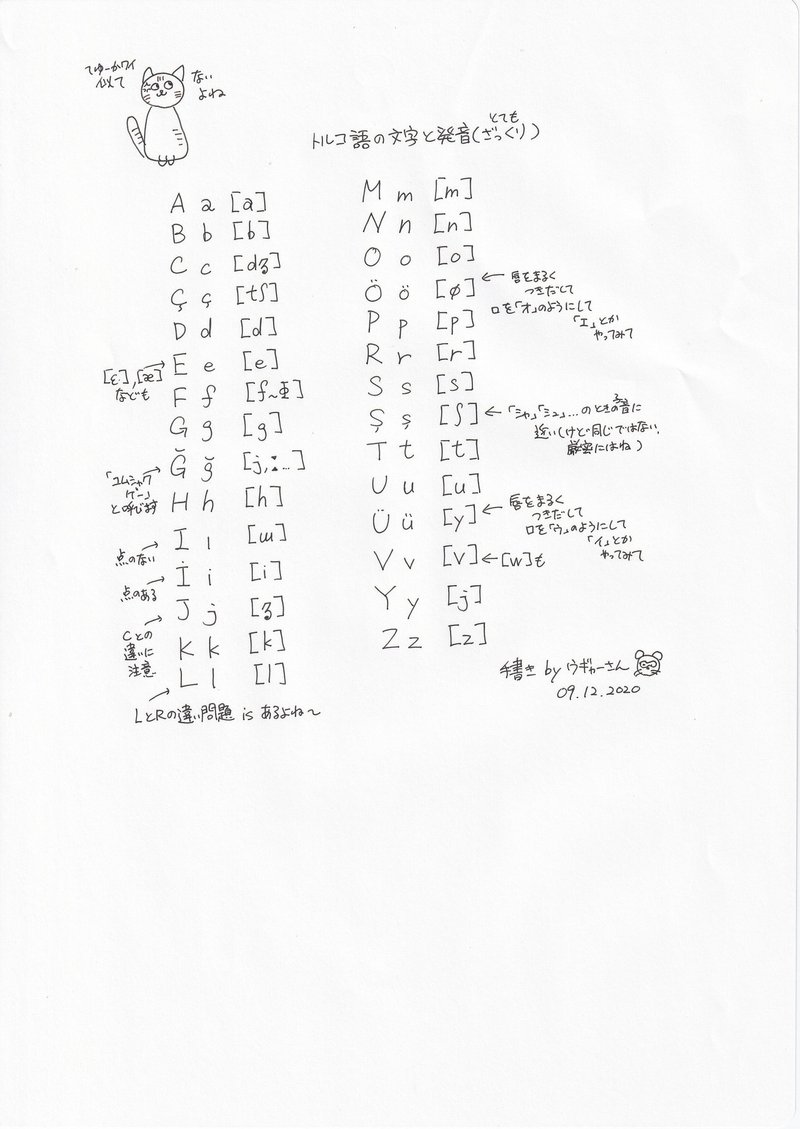 てゆーかワイ
似て
ない
よね
とても
トルコ語の文字と発音(ざっくり)
A a [a]
B b [b]
C c [dʒ]
Ç ç [tʃ]
D d [d]
E e [e]
[ɛ],[æ]
なども
F f [f~Φ]
G g [g]
Ğ ğ [j,ː...]
「ユムシャク
ゲー」
と呼びます
H h [h]
I ı [ɯ]
点のない
İ i [i]
点のある
J j [ʒ]
Cとの
違いに
注意
K k [k]
L l [l]
LとRの違い問題 is あるよね～
M m [m]
N n [n]
O o [o]
Ö ö [ø]
←唇をまるく
つきだして
口を「オ」のようにして
「エ」とか
やってみて
P p [p]
R r [r]
S s [s]
Ş ş [ʃ]
←「シャ」「シュ」...のときの音に
近い(けど同じではない、
厳密にはね)
T t [t]
U u [u]
Ü ü [y]
←唇をまるく
つきだして
口を「ウ」のようにして
「イ」とか
やってみて
V v [v]←[w]も
Y y [j]
Z z [z]
手書き by ウギャーさん
09.12.2020